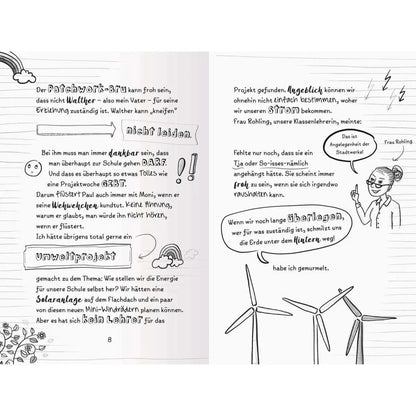 Der Patchwork-Bru kann froh sein,
dass nicht Walther – also mein Vater – für seine
Erziehung zuständig ist. Walther kann „kneifen"
nicht leiden.
Bei ihm muss man immer dankbar sein, dass
man überhaupt zur Schule gehen DARF.
Und dass es überhaupt so etwas Tolles wie
eine Projektwoche GIBT.
Darum flüstert Paul auch immer mit Moni, wenn er
seine Wehwehchen kundtut. Keine Ahnung,
warum er glaubt, man würde ihn nicht hören,
wenn er flüstert.
Ich hätte übrigens total gerne ein
Umweltprojekt
gemacht zu dem Thema: Wie stellen wir die Energie
für unsere Schule selbst her? Wir hätten eine
Solaranlage auf dem Flachdach und ein paar
von diesen neuen Mini-Windrädern planen können.
Aber es hat sich kein Lehrer für das
8
Projekt gefunden. Angeblich können wir
ohnehin nicht einfach bestimmen, woher
wir unseren Strom bekommen.
Frau Rohling, unsere Klassenlehrerin, meinte:
Das ist
Angelegenheit der
Stadtwerke!
Frau Rohling.
Fehlte nur noch, dass sie ein
Tja oder So-isses-nämlich
angehängt hätte. Sie scheint immer
froh zu sein, wenn sie sich irgendwo
raushalten kann.
Wenn wir noch lange überlegen,
wer für was zuständig ist, schmilzt uns
die Erde unter dem Hintern weg!
habe ich gemurmelt.